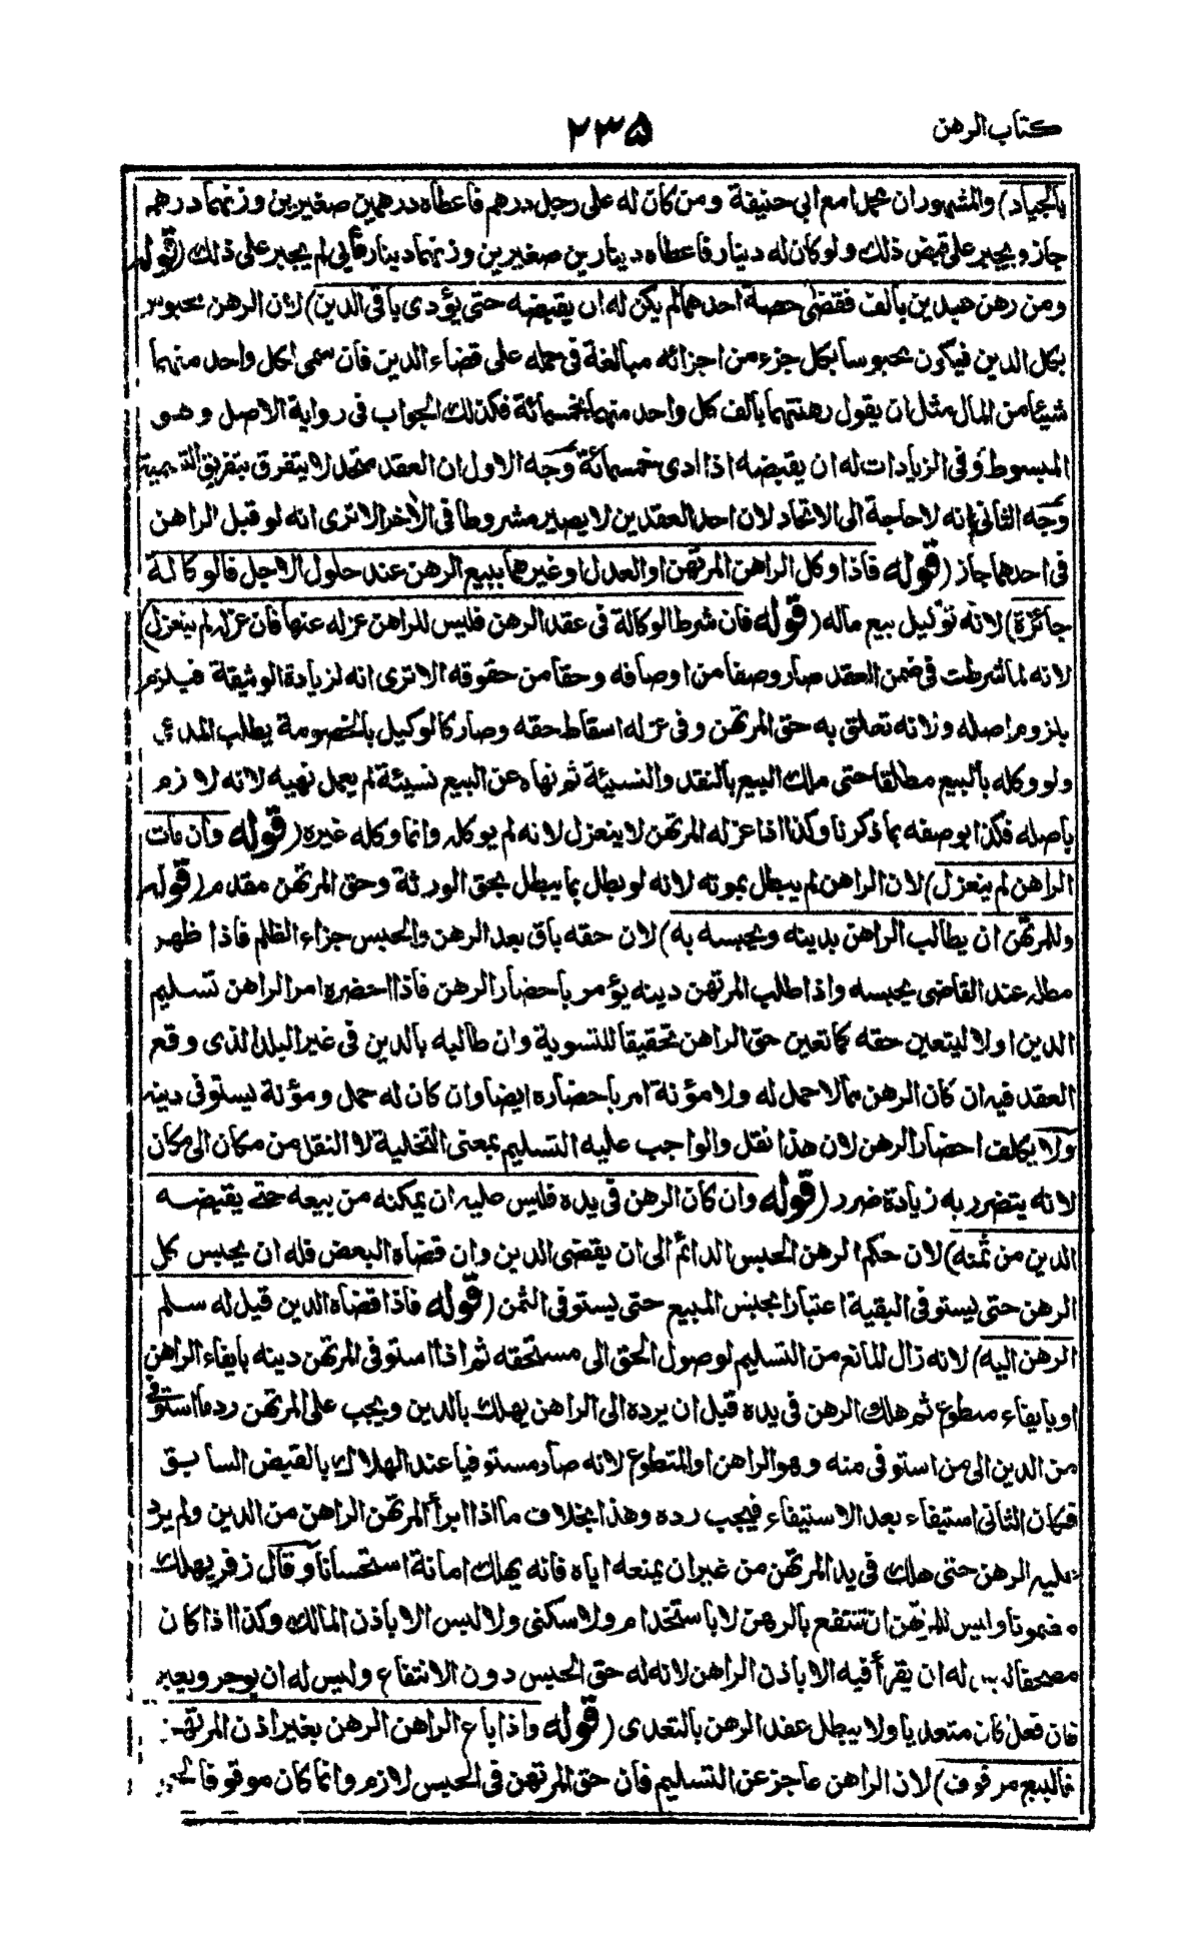 كتاب الرهن
٢٣٥
بالجياد) والمشهور ان محمدا مع ابي حنيفة ومن كان له على رجل درهم فاعطاه درهمين صغيرين وزنهما درهم
جاز ويجبر على قبض ذلك ولو كان له دينار فاعطاه دينارين صغيرين وزنهما دينار فأبى لم يجبر على ذلك (قوله
ومن رهن عبدين بالف فقضى حصة احدهما لم يكن له ان يقبضه حتى يؤدى باقى الدين) لان الرهن محبوس
بكل الدين فيكون محبوسا بكل جزء من اجزائه مبالغة فى حمله على قضاء الدين فان سمى لكل واحد منهما
شيئا من المال مثل ان يقول رهنتهما بالف كل واحد منهما بخمسمائة فكذلك الجواب فى رواية الاصل وهو
المبسوط وفى الزيادات له ان يقبضه اذا ادى خمسمائة وجه الاول ان العقد متحد لا يتفرق بتفريق التسمية
وجه الثانى انه لا حاجة الى الاتحاد لان احد العقدين لا يصير مشروطا فى الأخر الا ترى انه لو قبل الراهن
فى احدهما جاز (قوله فاذا وكل الراهن المرتهن او العدل او غيرهما ببيع الرهن عند حلول الاجل فالوكالة
جائزة) لانه توكيل بيع ماله (قوله فان شرط الوكالة فى عقد الرهن فليس للراهن عزله عنها فان عزله لم ينعزل)
لانه لما شرطت فى ضمن العقد صار وصفا من اوصافه وحقا من حقوقه الا ترى انه لزيادة الوثيقة فيلزم
بلزوم اصله ولانه تعلق به حق المرتهن وفى عزله اسقاط حقه وصار كالوكيل بالخصومة بطلب المدعى
ولو وكله بالبيع مطلقا حتى ملك البيع بالنقد والنسيئة ثم نهاه عن البيع نسيئة لم يعمل نهيه لانه لازم
باصله فكذا بوصفه بما ذكرنا وكذا اذا عزله المرتهن لا ينعزل لانه لم يوكله وانما وكله غيره (قوله وان مات
الراهن لم ينعزل) لان الراهن لم يبطل بموته لانه لو بطل بما يبطل بحق الورثة وحق المرتهن مقدم (قوله
وللمرتهن ان يطالب الراهن بدينه ويحبسه به) لان حقه باق بعد الرهن والحبس جزاء الظلم فاذا ظهر
مطله عند القاضى يحبسه واذا طلب المرتهن دينه يؤمر باحضار الرهن فاذا احضره امر الراهن تسليم
الدين اولا ليتعين حقه كما تعين حق الراهن تحقيقا للتسوية وان طالبه بالدين فى غير البلد الذى وقع
العقد فيه ان كان الرهن مما لا حمل له ولا مؤنة امر باحضاره ايضا وان كان له حمل ومؤنة يستوفى دينه
ولا يكلف احضار الرهن لان هذا نقل والواجب عليه التسليم بمعنى التخلية لا النقل من مكان الى مكان
لانه يتضرر به زيادة ضرر (قوله وان كان الرهن فى يده فليس عليه ان يمكنه من بيعه حتى يقبضه
الدين من ثمنه) لان حكم الرهن الحبس الدائم الى ان يقضى الدين وان قضاه البعض فله ان يحبس كل
الرهن حتى يستوفى البقية اعتبارا بحبس المبيع حتى يستوفى الثمن (قوله فاذا قضاه الدين قيل له سلم
الرهن اليه) لانه زال المانع من التسليم لوصول الحق الى مستحقه ثم اذا استوفى المرتهن دينه بايفاء الراهن
او بايفاء متطوع ثم هلك الرهن فى يده قبل ان يرده الى الراهن يهلك بالدين ويجب على المرتهن رد ما استوفى
من الدين الى من استوفى منه وهو الراهن او المتطوع لانه صار مستوفيا عند الهلاك بالقبض السابق
فكان الثانى استيفاء بعد الاستيفاء فيجب رده وهذا بخلاف ما اذا ابرأ المرتهن الراهن من الدين ولم يرد
عليه الرهن حتى هلك فى يد المرتهن من غير ان يمنعه اياه فانه يهلك امانة استحسانا وقال زفر يهلك
مضمونا وليس للمرتهن ان تنتفع بالرهن لا باستخدام ولا سكنى ولا لبس الا باذن المالك وكذا اذا كان
مصحفا ليس له ان يقرأ فيه الا باذن الراهن لانه له حق الحبس دون الانتفاع وليس له ان يوجر ويعير
فان فعل كان متعديا ولا يبطل عقد الرهن بالتعدى (قوله واذا باع الراهن الرهن بغير اذن المرتهن
فالبيع موقوف) لان الراهن عاجز عن التسليم فان حق المرتهن فى الحبس لازم وانما كان موقوفا